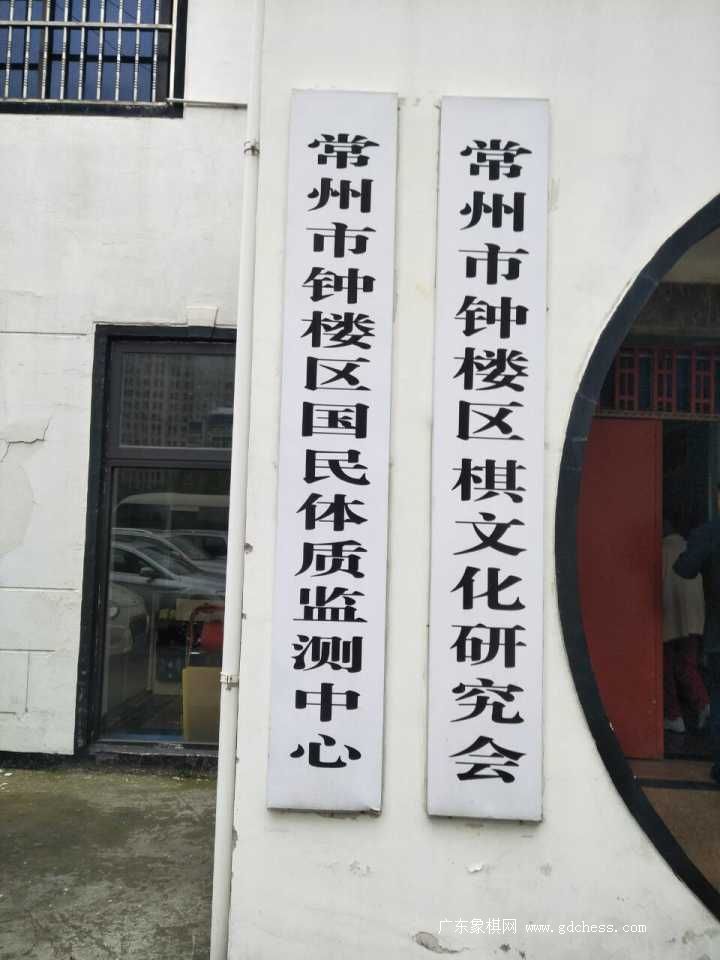 常州市钟楼区国民体质监测中心
常州市钟楼区棋文化研究会
广东象棋网 www.gdchess.com